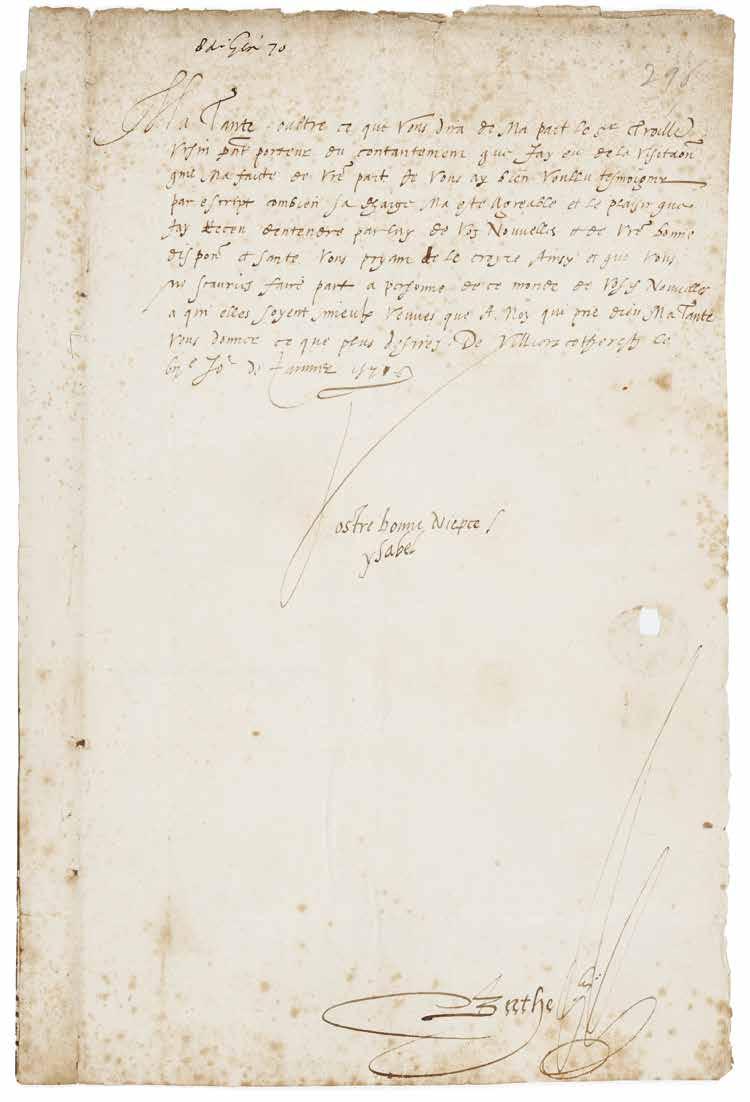 8 di Gen 70
296
Ma Tante oultre ce que Vous dira de Ma part le Sr Troille
Vrsin pnt porteur du contantement que Jay eu de la Visitaon
que Ma faicte de Vre part Je Vous ay bien Voullu tesmoigner
par escript combien sa Ma este Agreable et le plaisir que
Jay Receu dentendre par luy de Voz Nouvelles et de Vre bonne
dispon et sante Vous pryant de le croyre Ainsy et que Vous
ne scauries faire part a personne de ce monde de Nouvelles
a qui elles soyent mieulx Venues que A Moy qui prie dieu Ma Tante
Vous donner ce que plus desirez De Villiers le
Jor de Janvier
Vostre bonne Niepce
ysabel